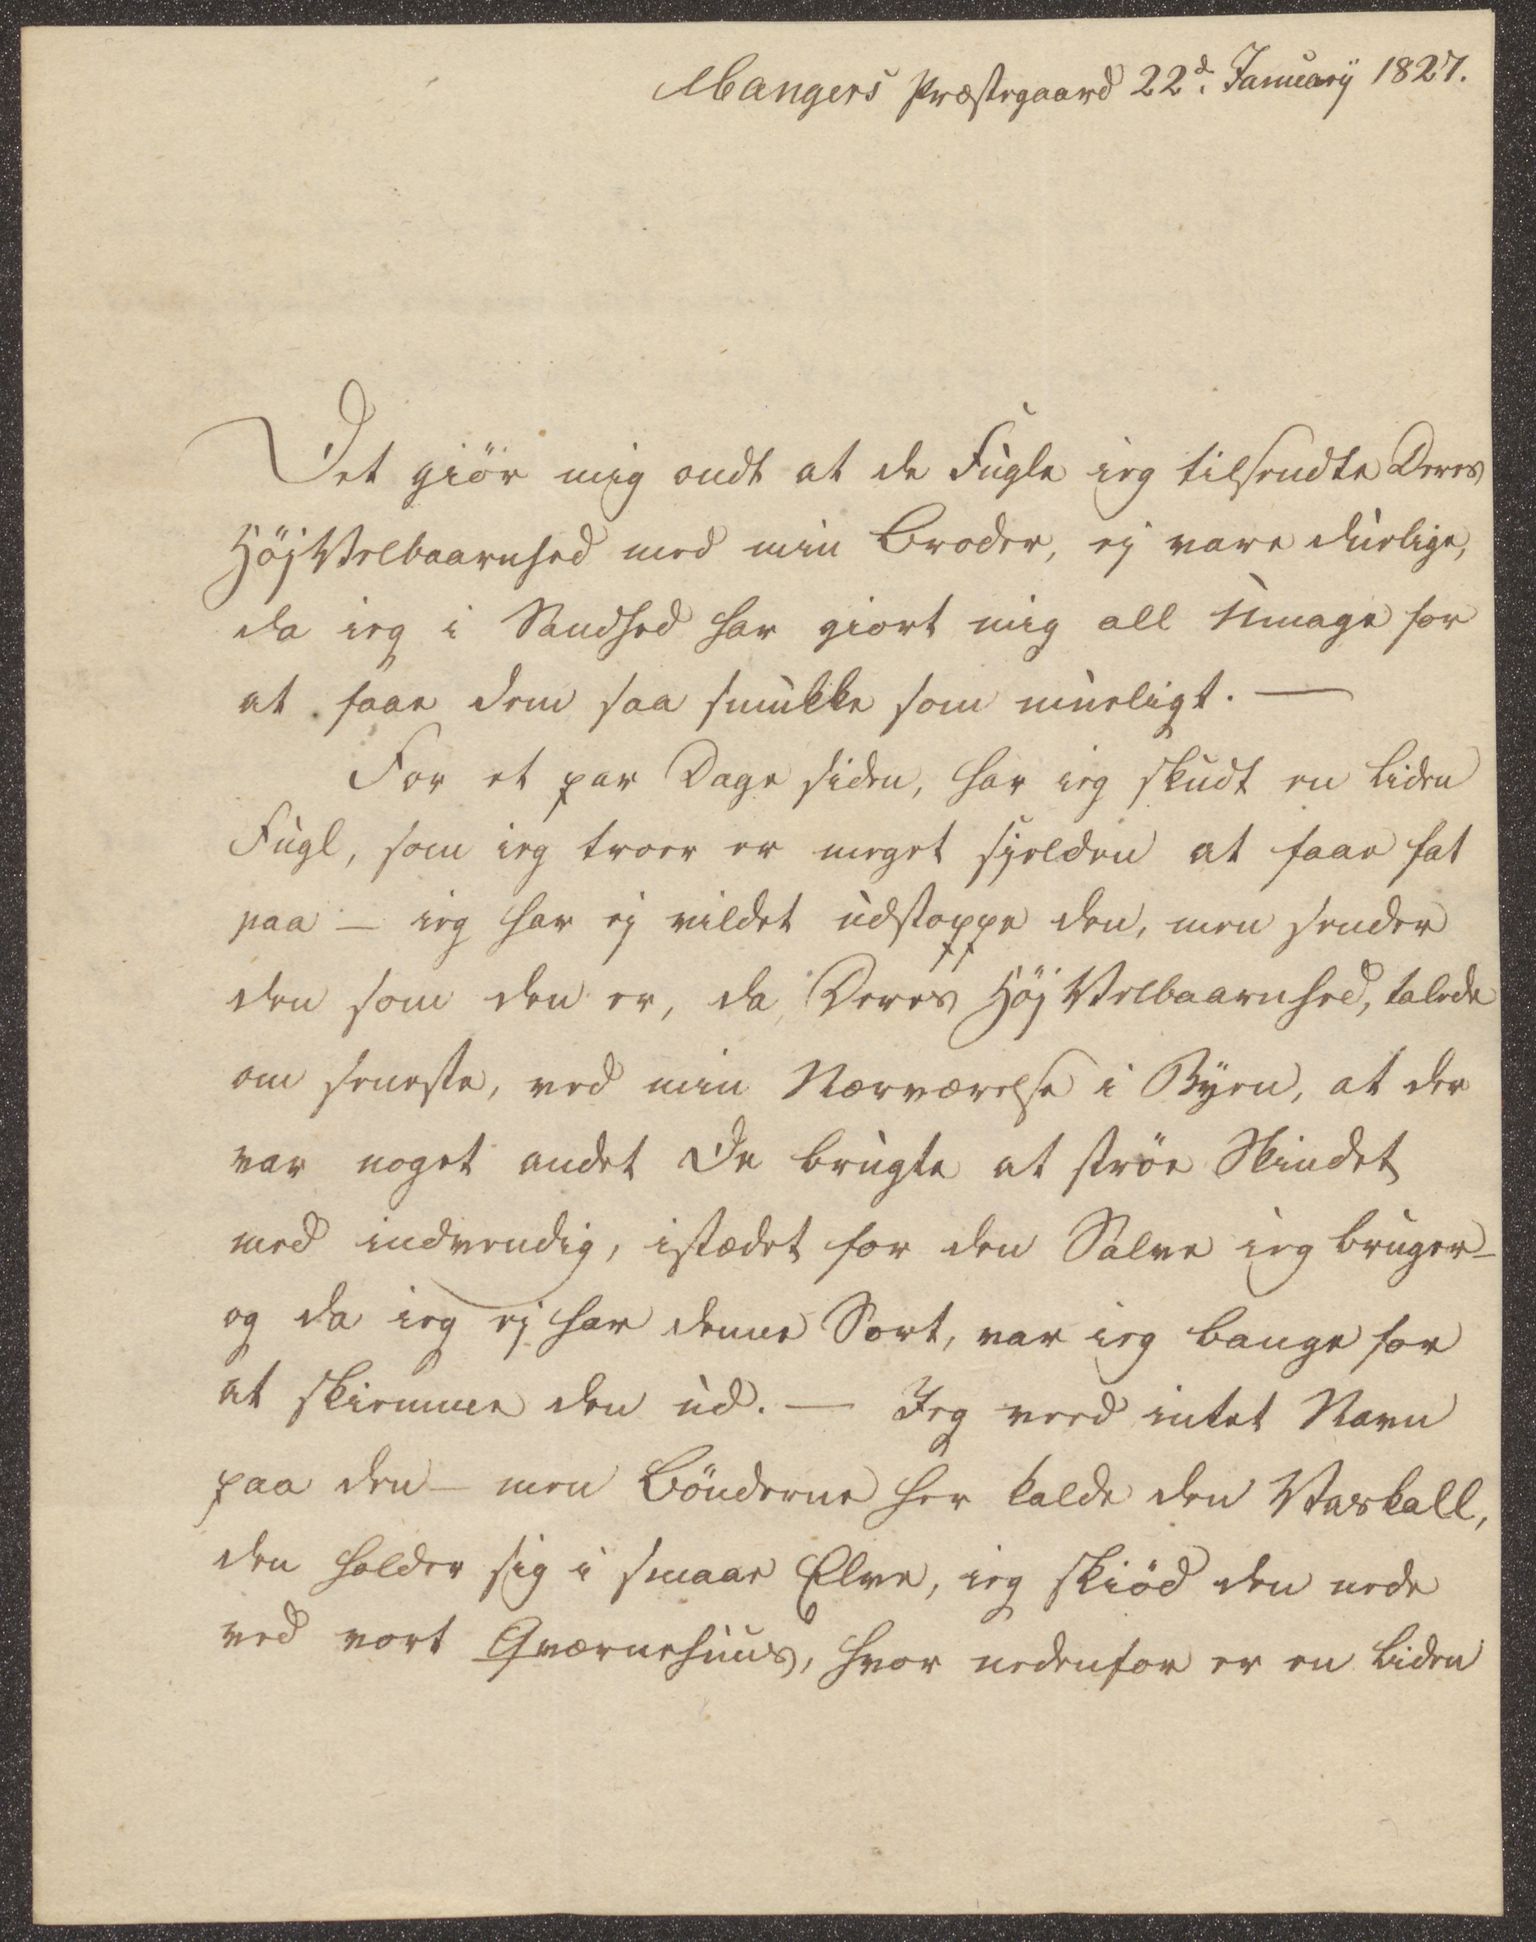 Mangers Præstegaard 22d. Januarÿ 1827.
Det giör mig ondt at de Fugle ieg tilsendte Deres
HöjVelbaarnhed med min Broder, ej vare duelige,
da ieg i Sandhed har giort mig all Umage for
at faae dem saa smukke som mueligt. —
For et par Dage siden, har ieg skudt en liden
Fugl, som ieg troer er meget sjelden at faae fat
paa — ieg har ej vildet udstoppe den, men sender
den som den er, da Deres HöjVelbaarnhed, talede
om seneste, ved min Nærværelse i Byen, at der
var noget andet De brugte at ströe Skindet
med indvendig, istædet for den Salve ieg bruger —
og da ieg ej har denne Sort, var ieg bange for
at skiemme den ud. — Jeg veed intet Navn
paa den — men Bönderne her kalde den Vaskall,
den holder sig i smaae Elve, ieg skiöd den nede
ved vort Qværnehuus, hvor nedenfor er en liden